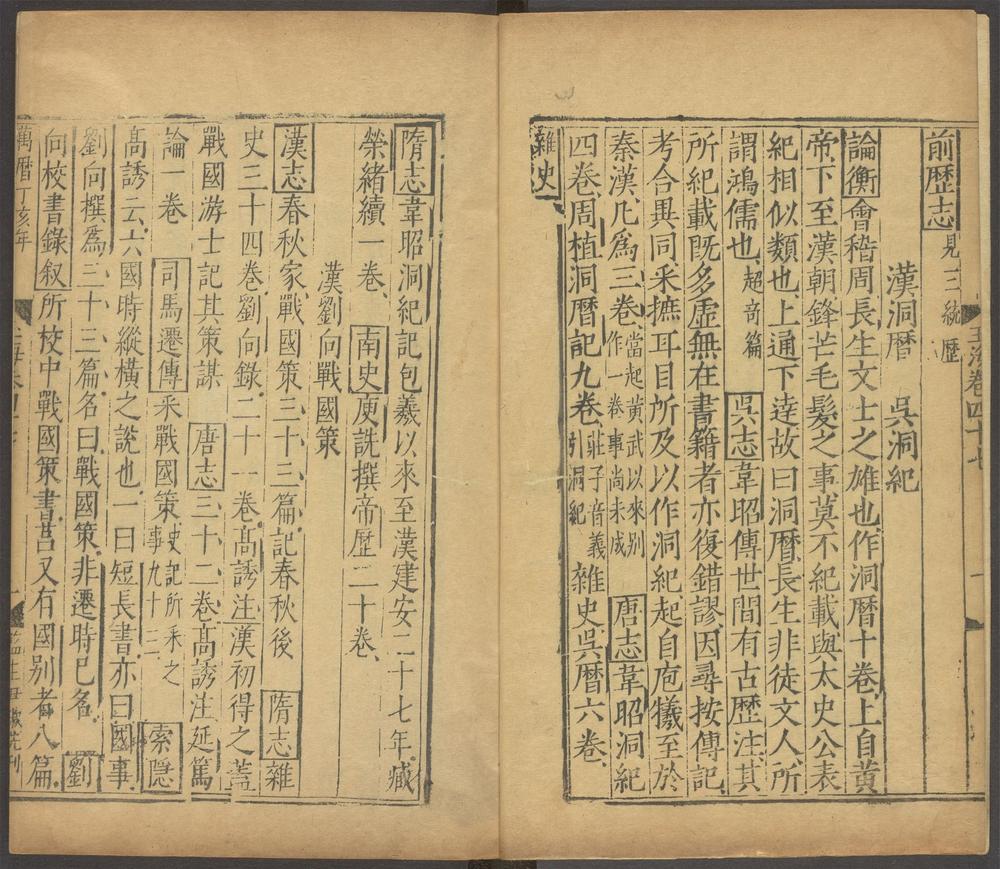 玉海卷四十七
一
前歷志見三統歷
漢洞曆　吳洞紀
論衡會稽周長生文士之雄也作洞曆十卷上自黃
帝下至漢朝鋒芒毛髮之事莫不紀載與太史公表
紀相似類也上通下達故曰洞曆長生非徒文人所
謂鴻儒也超奇篇　吳志韋昭傳世間有古歷注其
所紀載既多虛無在書籍者亦復錯謬因尋按傳記
考合異同采摭耳目所及以作洞紀起自庖犧至於
秦漢凡爲三卷當起黃武以來別作一卷事尚未成　唐志韋昭洞紀
四卷周植洞曆記九卷莊子音義引洞紀　雜史吳曆六卷
雜史
隋志韋昭洞紀記包羲以來至漢建安二十七年臧
榮緒續一卷　南史庾詵撰帝歷二十卷
漢劉向戰國策
漢志春秋家戰國策三十三篇記春秋後　隋志雜
史三十四卷劉向錄二十一卷髙誘注漢初得之蓋
戰國游士記其策謀　唐志三十二卷髙誘注延篤
論一卷　司馬遷傳采戰國策史記所采之事九十三　索隱
髙誘云六國時縱橫之說也一曰短長書亦曰國事
劉向撰爲三十三篇名曰戰國策非遷時已名　劉
向校書錄叙所校中戰國策書莒又有國別者八篇
萬曆丁亥年
一
監生毋
刊